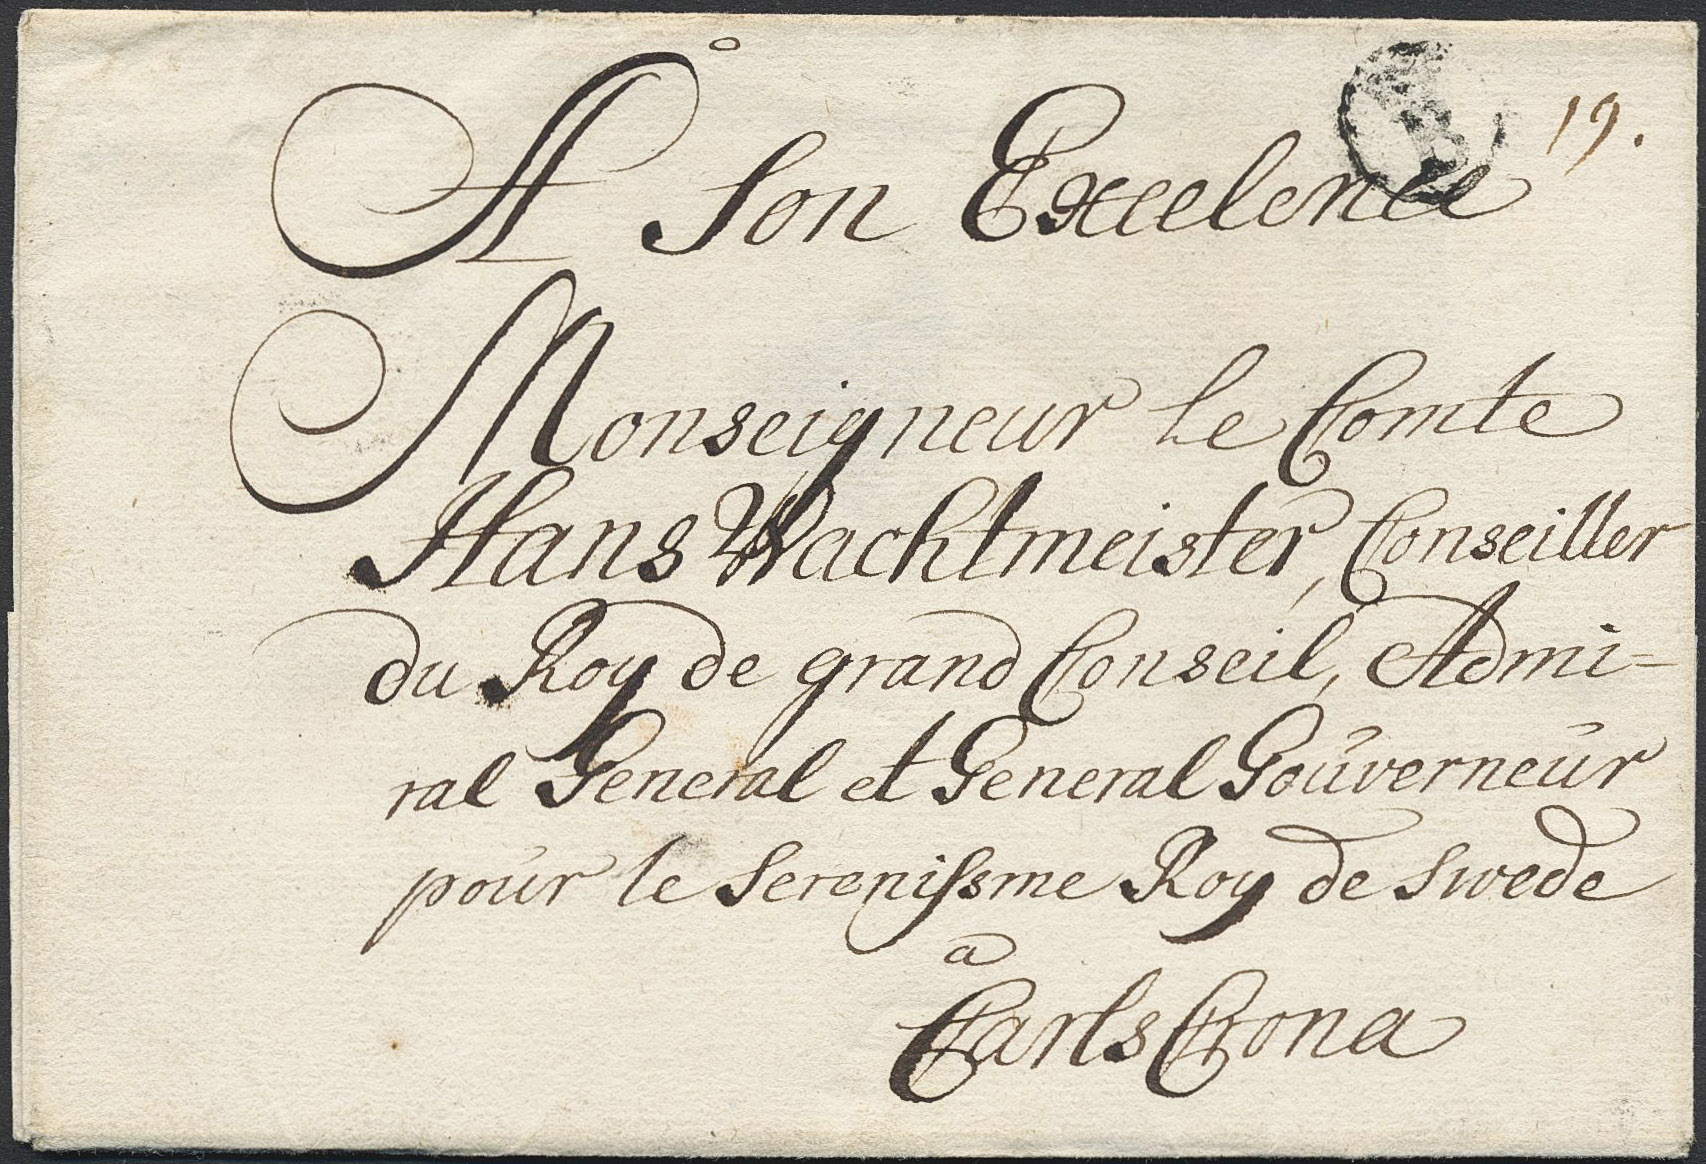 A Son Excelence
19.
Monseigneur le Comte
Hans Wachtmeister, Conseiller
du Roy de grand Conseil, Admi-
ral General et General Gouverneur
pour le Serenissme Roy de Swede
a
Carls Crona